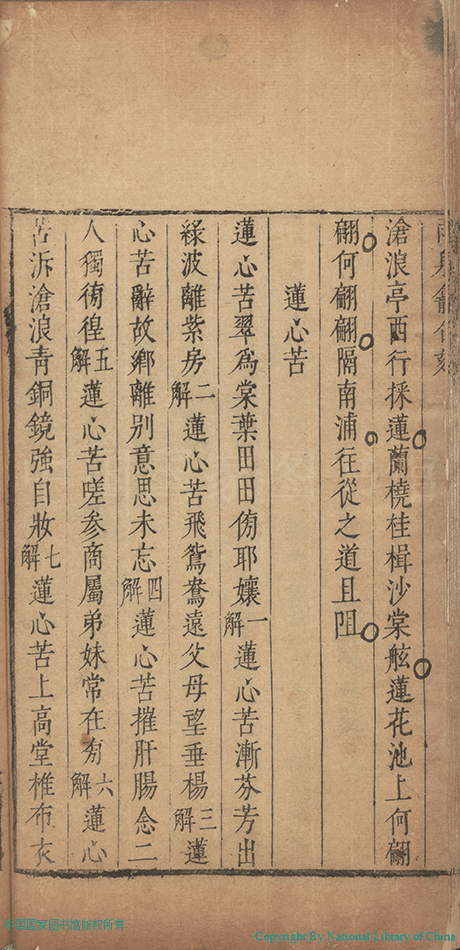 滄浪亭西行採蓮蘭橈桂楫沙棠舷蓮花池上何翩
翩何翩翩隔南浦往從之道且阻
蓮心苦
蓮心苦翠為棠葉田田傍耶孃一解蓮心苦漸芬芳出
綠波離紫房二解蓮心苦飛鴛鴦遠父母望垂楊三解蓮
心苦辭故鄉離別意思未忘四解蓮心苦摧肝腸念二
人獨徬徨五解蓮心苦嗟參商屬弟妹常在旁六解蓮心
苦泝滄浪青銅鏡強自妝七解蓮心苦上高堂椎布衣
中国国家图书馆版权所有
Copyright By National Library of China